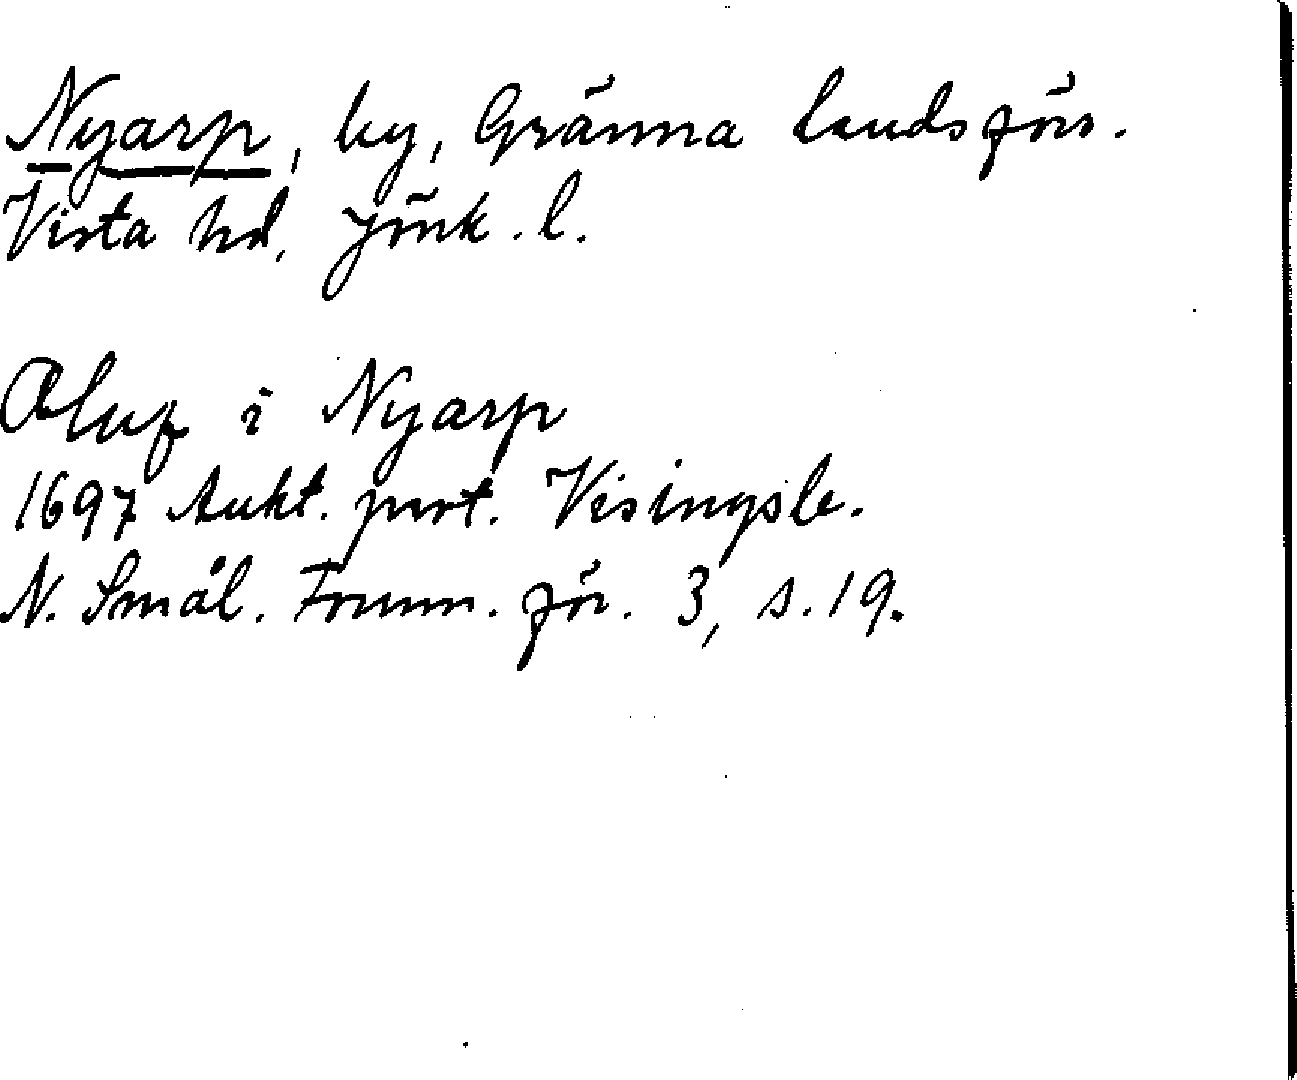 Nyarp, by, Gränna landsförs.
Vista hd, Jönk. l.
Oluf i Nyarp
1697 Aukt. prot. Visingsb.
N. Smål. Fornm. för. 3, s. 19.